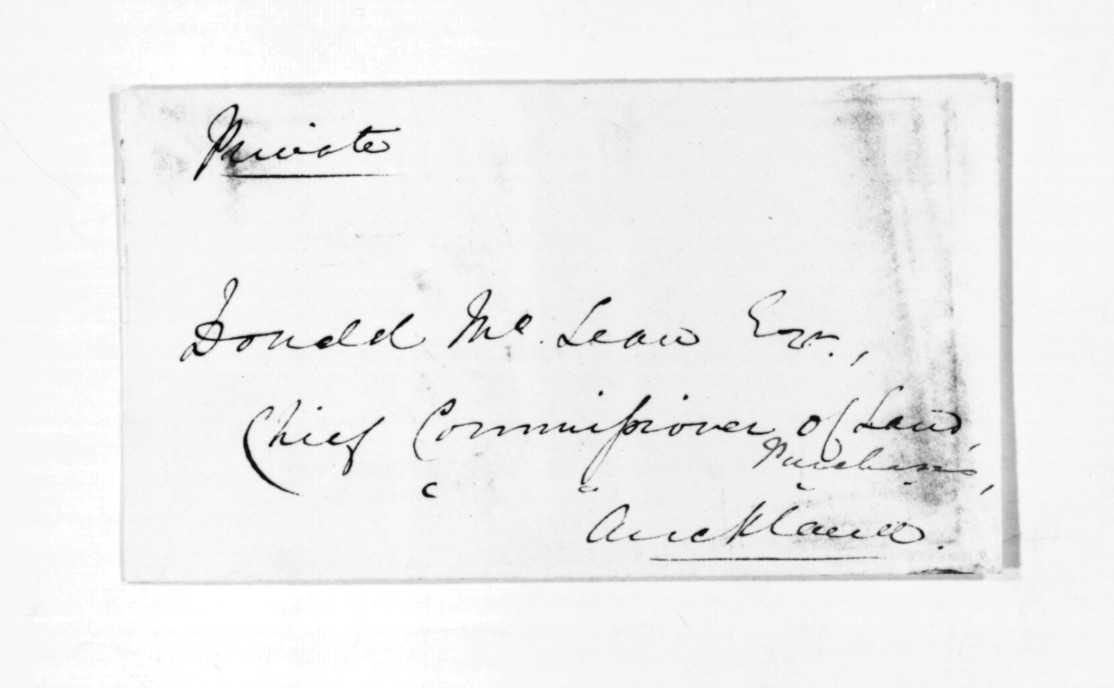 Private
Donald McLean Esqr.,
Chief Commissioner of Land
Purchases,
Auckland.